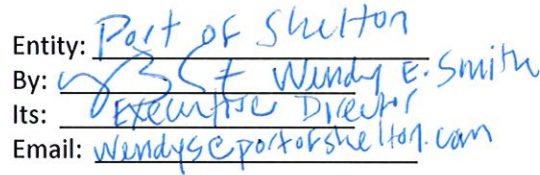 Entity: Port of Shelton
By: Wendy E. Smith
Its: Executive Director
Email: wendys@portofshelton.com